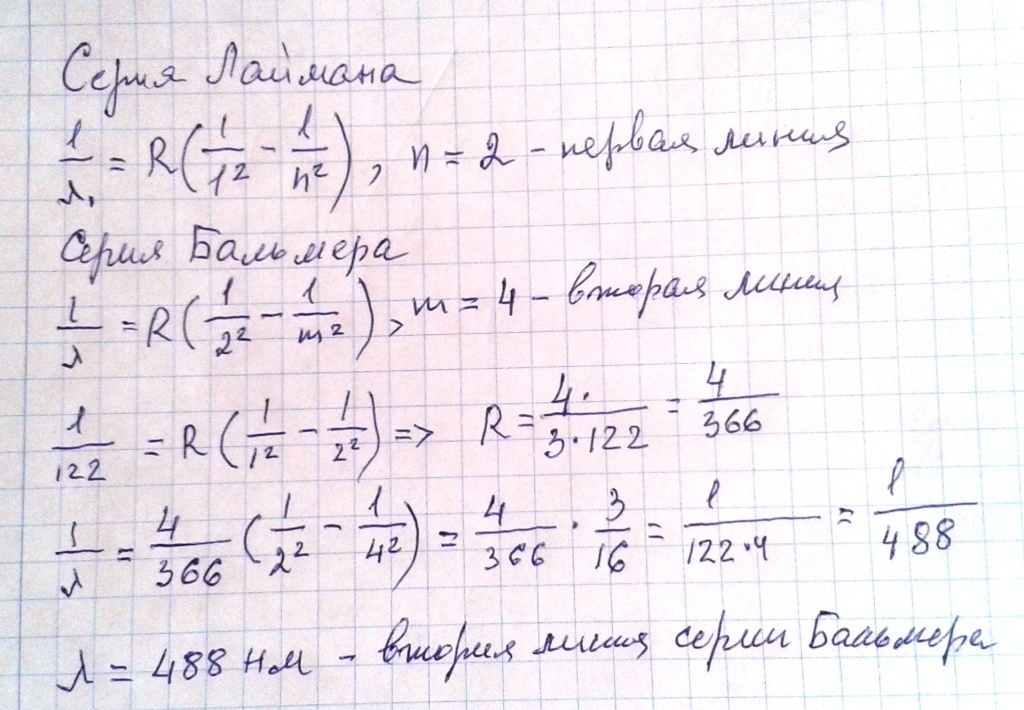 Серия Лаймана
1/λ₁ = R(1/1² - 1/n²), n = 2 - первая линия
Серия Бальмера
1/λ = R(1/2² - 1/m²), m = 4 - вторая линия
1/122 = R(1/1² - 1/2²) => R = 4·/3·122 = 4/366
1/λ = 4/366 (1/2² - 1/4²) = 4/366 · 3/16 = 1/122·4 = 1/488
λ = 488 нм - вторая линия серии Бальмера